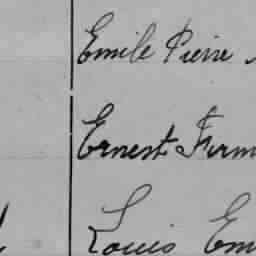 Emile Pierre
Ernest Firm
Louis Em